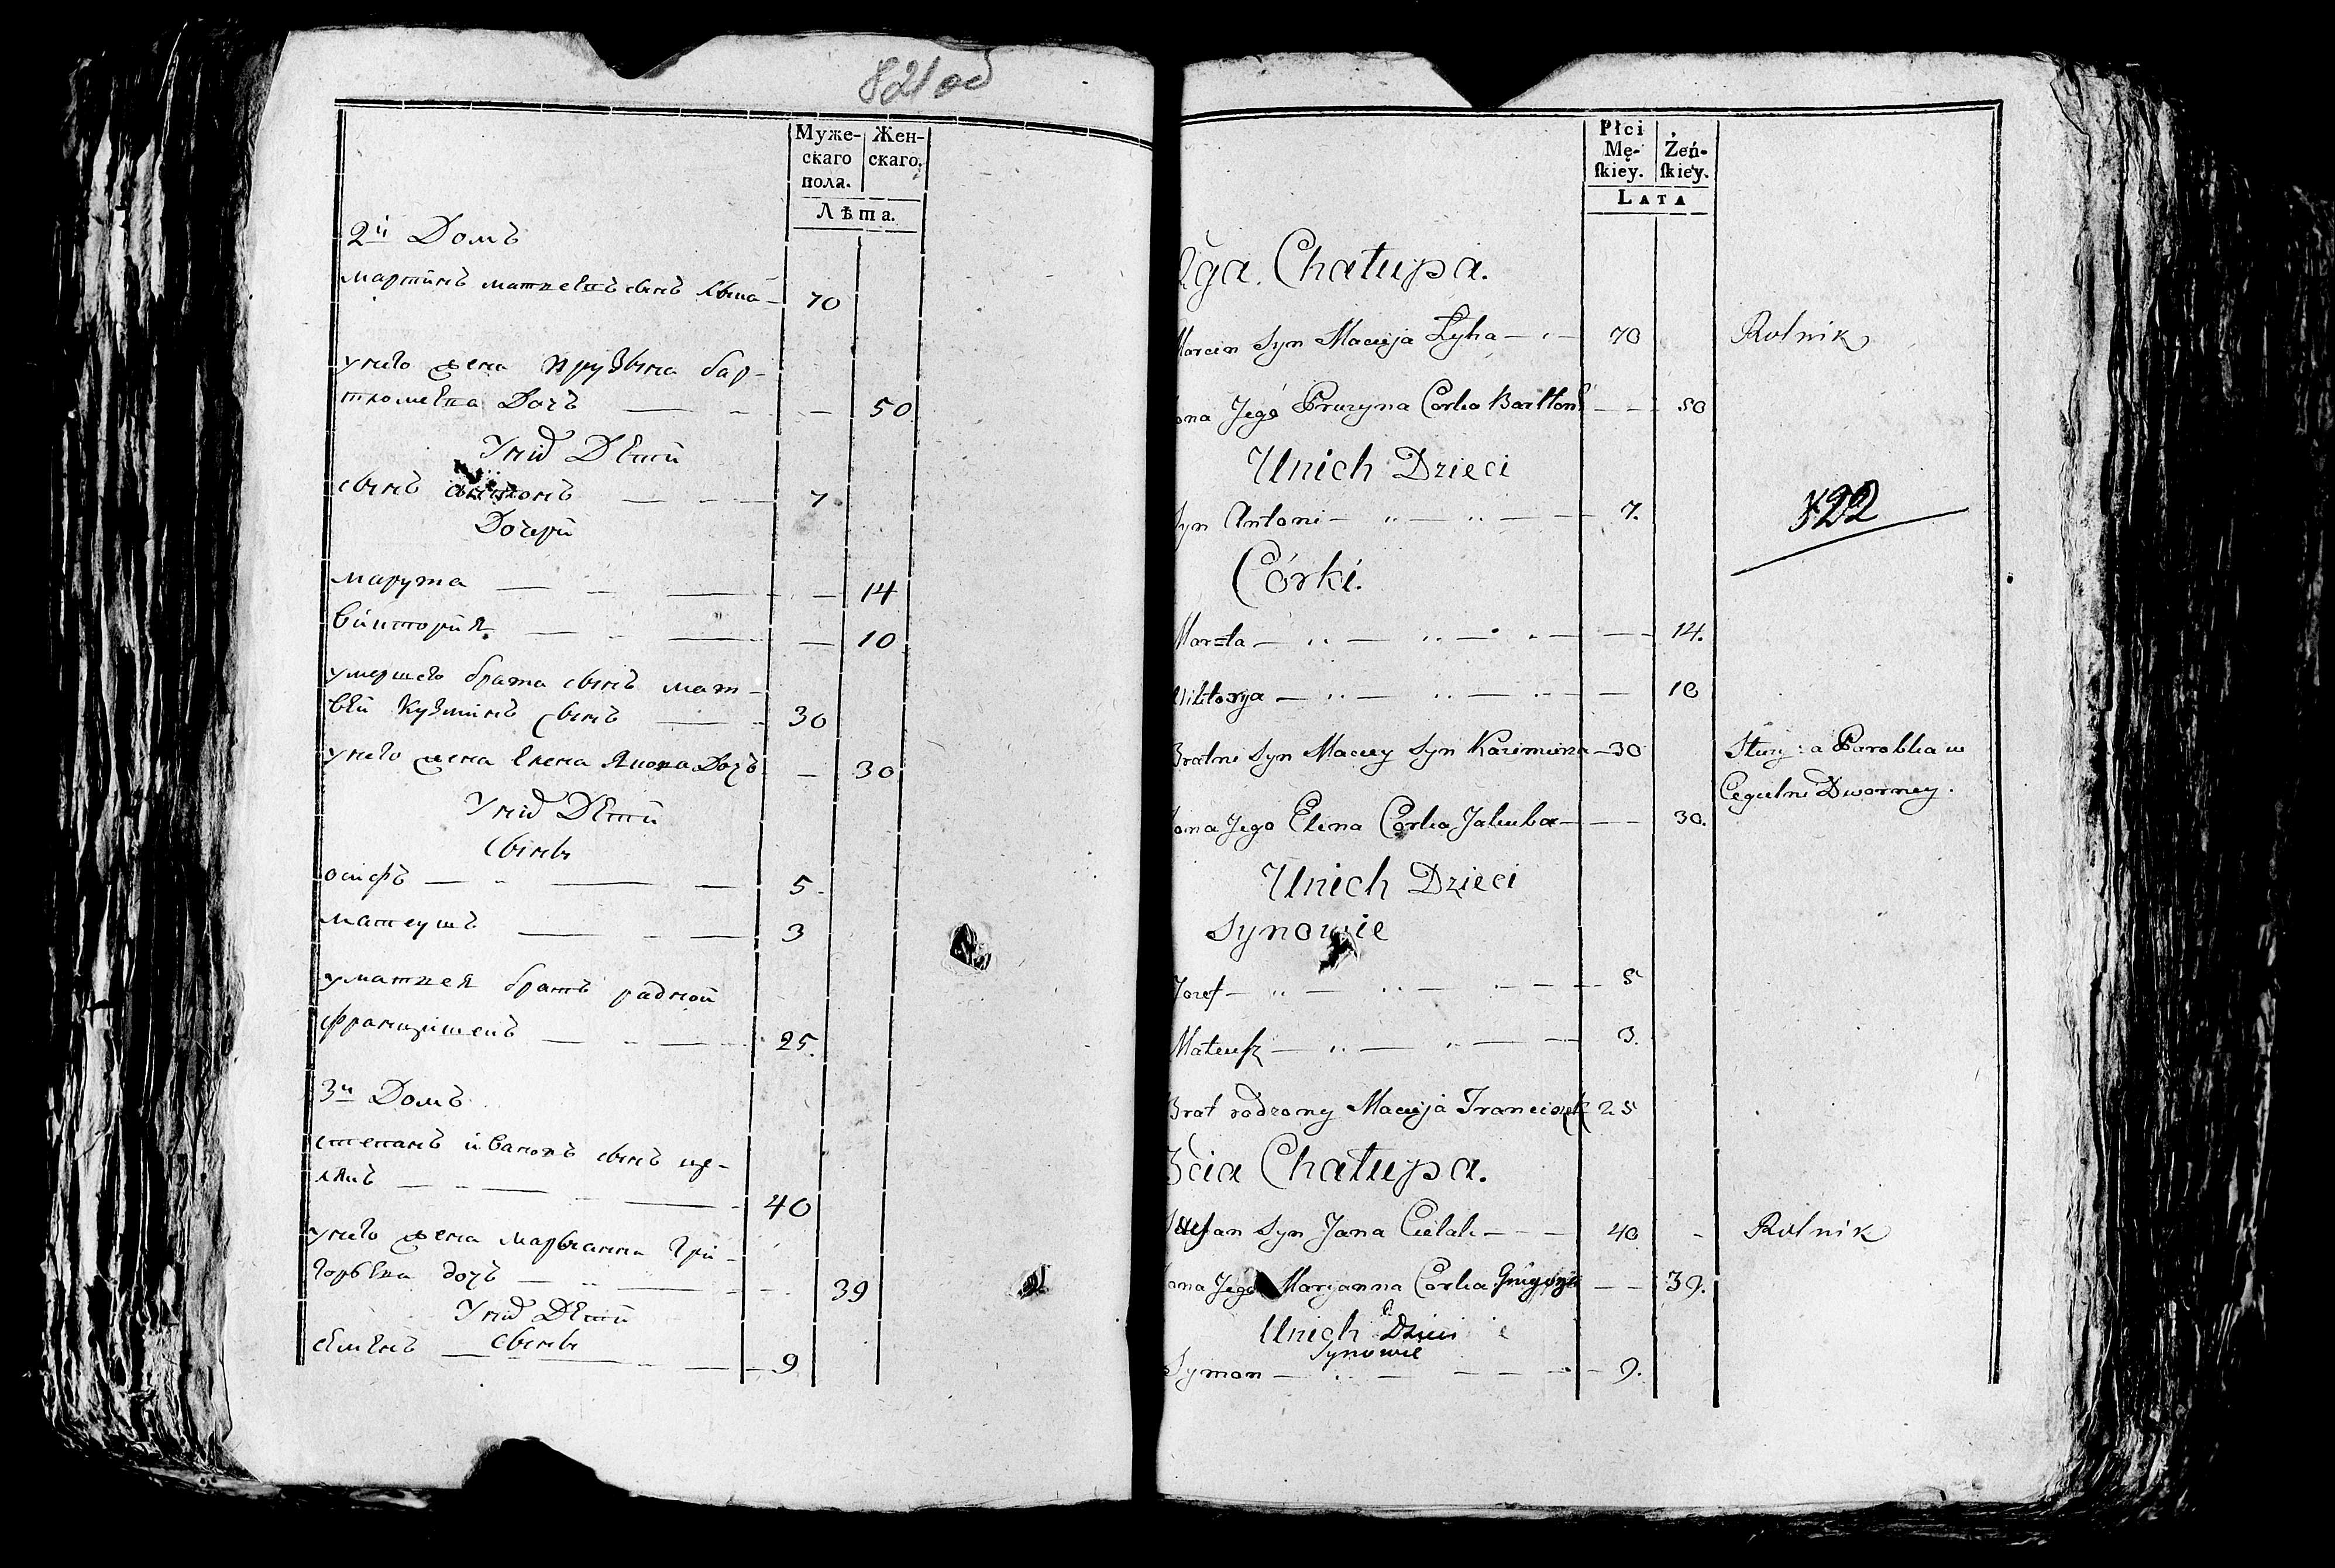 821 об
Муже-
скаго
пола.
Жен-
скаго.
Лѣта.
2й Домъ
мартинъ матвеевъ сынъ лыка 70
у него жена прузына бар-
тломеева дочъ 50
У них Дѣти
сынъ антонъ 7
Дочери
марута 14
викторыя 10
умершего брата сынъ мат-
вей Кузминъ сынъ 30
у него жена елена Якова дочъ 30
У них Дѣти
сыны
осифъ 5
матеушъ 3
у матвея братъ радной
францишекъ 25.
3й Домъ
степанъ иванов сынъ це-
лякъ 40
у него жена марыанна гри-
горьева дочъ 39
У них Дѣти
сыны
семенъ 9
Płci
Mę-
skiey.
Żeń-
skiey.
LATA
2ga. Chałupa.
Marcin Syn Macieja Łyka 70 Rolnik
Żona Jego Pruzyna Corka Bartłom 50
Unich Dzieci
Syn Antoni 7.
522
Córki.
Maruta 14.
Wiktorya 10
Bratni Syn Maciey Syn Kazimierza 30 Służy za Parobka w
Cegielni Dworney.
Żona Jego Elena Corka Jakuba 30.
Unich Dzieci
Synowie
Jozef 5
Mateusz 3.
Brat rodzony Macieja Franciszek 25
3cia Chałupa.
Stefan Syn Jana Cielak 40 Rolnik
Żona Jego Maryanna Corka Grigorja 39.
Unich Dzieci
Synowie
Symon 9.